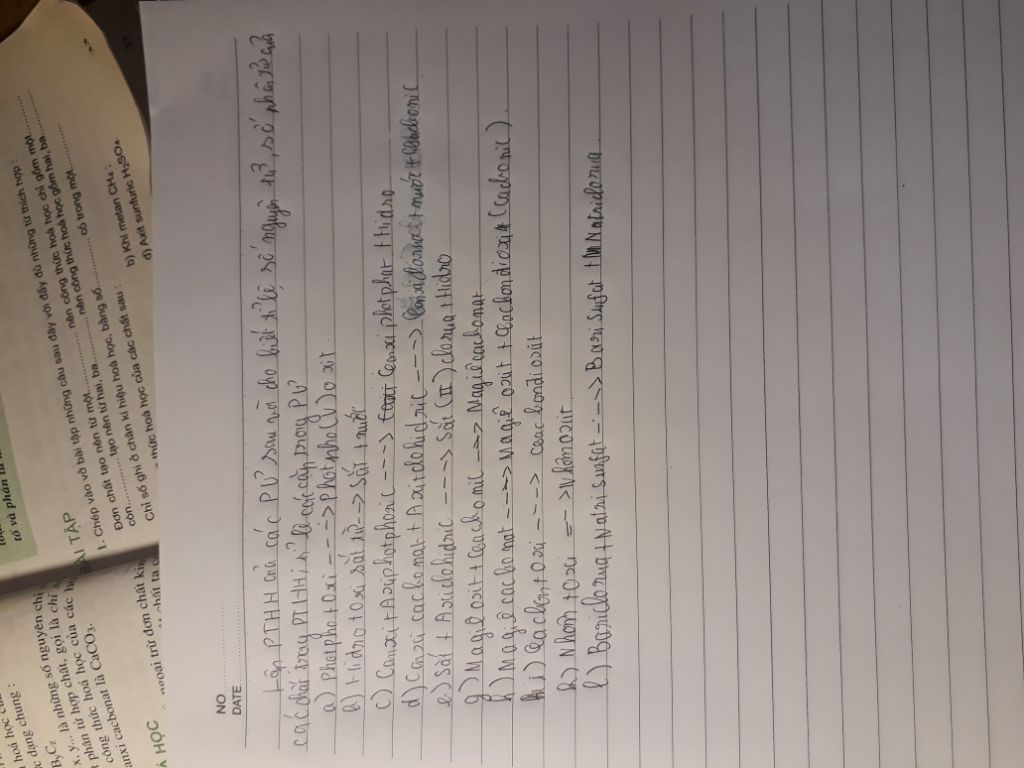 tố và phân tử
BÀI TẬP
1. Chép vào vở bài tập những câu sau đây với đầy đủ những từ thích hợp :
Đơn chất tạo nên từ một............... nên công thức hoá học chỉ gồm một............
còn............... tạo nên từ hai, ba............... nên công thức hoá học gồm hai, ba............
Chỉ số ghi ở chân kí hiệu hoá học, bằng số............... có trong một............
thức hoá học của các chất sau :
b) Khí metan CH₄ ;
d) Axit sunfuric H₂SO₄
hoá học
dạng chung :
là những số nguyên chỉ
x, y... từ hợp chất, gọi là chỉ
phân tử hoá học của các
công thức hoá học của các
anxi cacbonat là CaCO₃.
HOÁ HỌC
ngoài trừ đơn chất kim
NO
DATE
Lập PTHH của các PƯ sau và cho biết tỉ lệ số nguyên tử, số phân tử của
các chất trong PTHH, tỉ lệ các cặp trong PƯ
a) Photpho + Oxi ----> Photpho (V) oxit
b) Hidro + oxi sắt từ --> Sắt + nước
c) Canxi + Axit photphoric ---> Canxi photphat + Hidro
d) Canxi cacbonat + Axit clohidric ---> Canxi clorua + nước + Cacbonic
e) Sắt + Axit clohidric ---> Sắt (II) clorua + Hidro
g) Magiê oxit + Cacbonic --> Magiê cacbonat
h) Magiê cacbonat ----> Magiê oxit + Cacbon đioxit (Cacbonic)
i) Cacbon + Oxi ----> cacbon đioxit
k) Nhôm + Oxi ---> Nhôm oxit
l) Bari clorua + Natri sunfat ----> Bari sunfat + Natri clorua